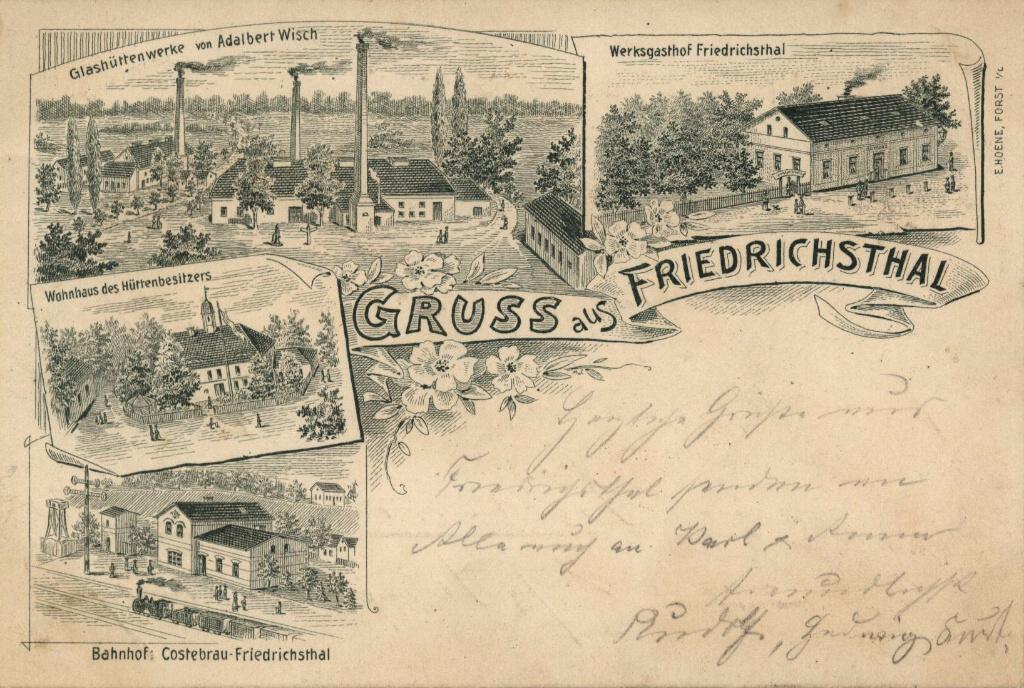 Glashüttenwerke von Adalbert Wisch
Werksgasthof Friedrichsthal
E. HOENE, FORST i/L
Wohnhaus des Hüttenbesitzers
GRUSS aus FRIEDRICHSTHAL
Herzliche Grüße aus
Friedrichsthal senden an
Alle auch an Karl &
freundlichst
Rudolf, Hedwig
Bahnhof: Costebrau-Friedrichsthal